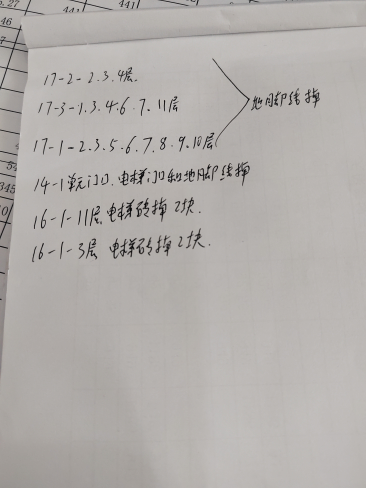 17-2-2.3.4层.
17-3-1.3.4.6.7.11层
地脚线掉
17-1-2.3.5.6.7.8.9.10层
14-1单元门口.电梯门口和地脚线掉
16-1-11层电梯砖掉2块.
16-1-3层电梯砖掉2块.